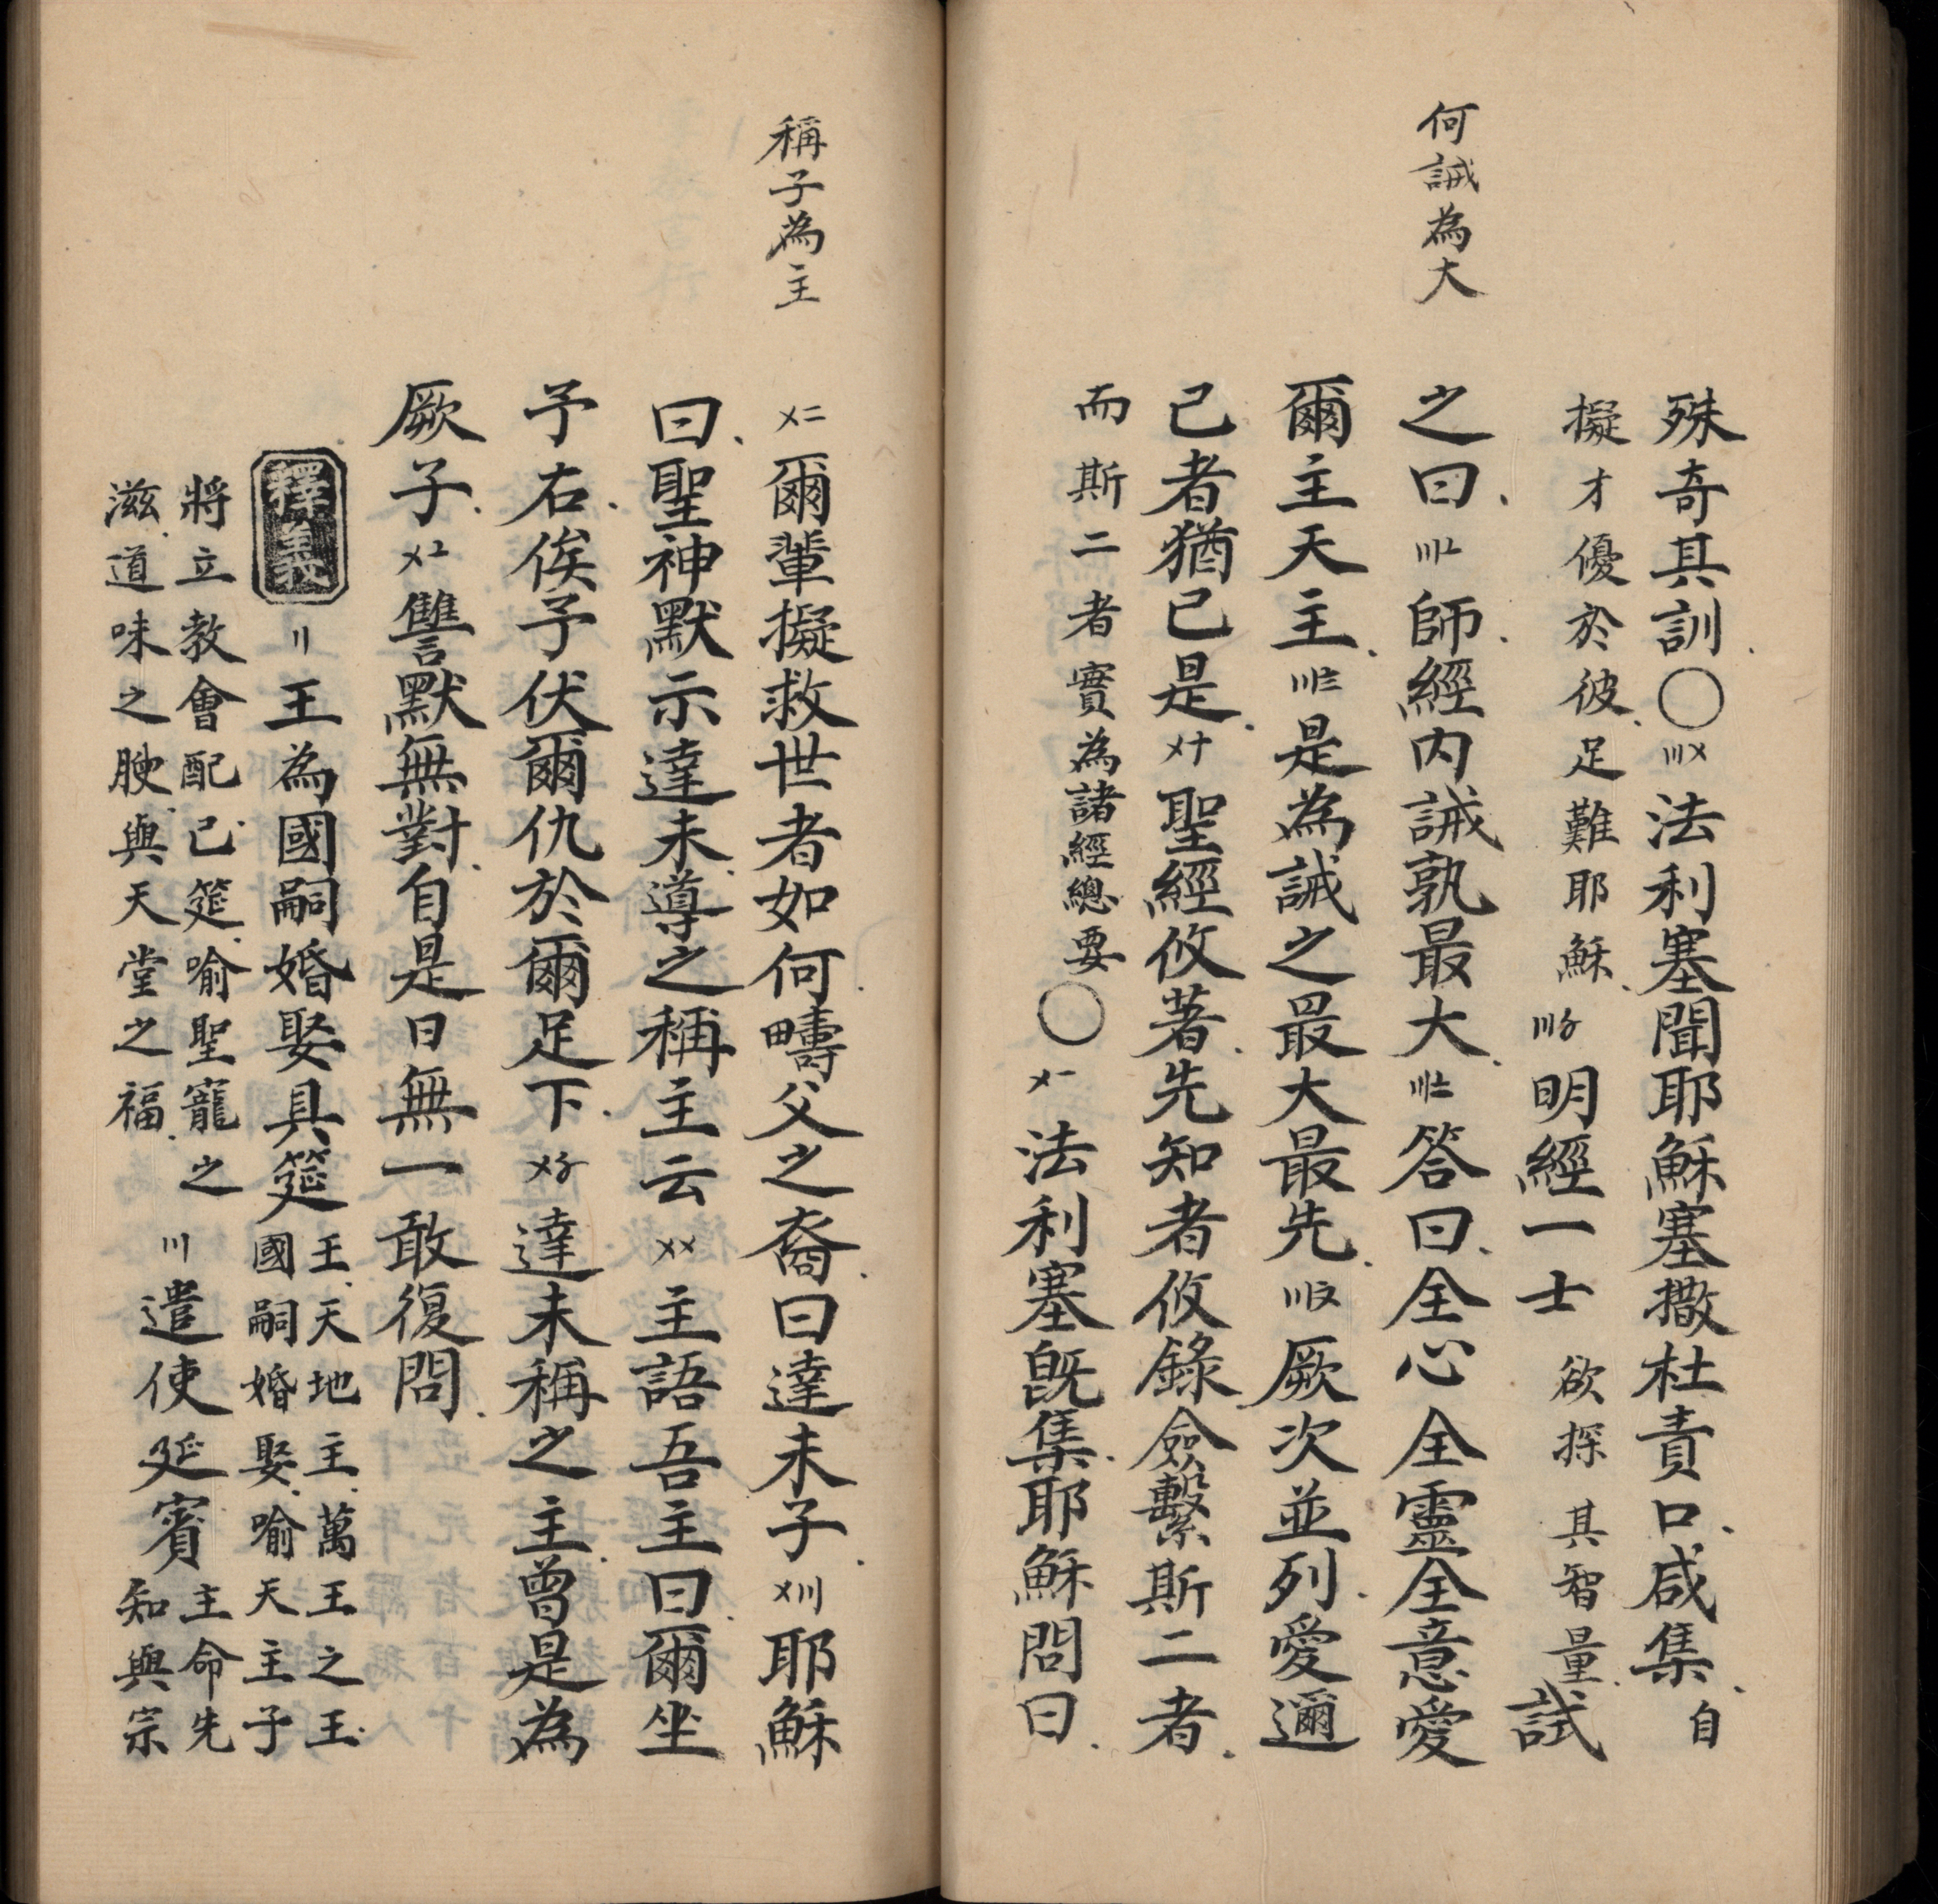 何誡為大
殊奇其訓○〣〤法利塞聞耶穌塞撒杜責口咸集自
擬才優於彼足難耶穌〣〥明經一士欲探其智量試
之曰〣〦師經內誡孰最大〣〧答曰全心全靈全意愛
爾主天主〣〨是為誡之最大最先〣〩厥次並列愛邇
己者猶己是〤十聖經攸著先知者攸錄僉繫斯二者
而斯二者實為諸經總要○〤一法利塞既集耶穌問曰
稱子為主
〤二爾輩擬救世者如何疇父之裔曰達未子〤〣耶穌
曰聖神默示達未導之稱主云〤〤主語吾主曰爾坐
予右俟予伏爾仇於爾足下〤〥達未稱之主曾是為
厥子〤〦讐默無對自是日無一敢復問
釋義
〢王為國嗣婚娶具筵王天地主萬王之王
國嗣婚娶喻天主子
將立教會配己筵喻聖寵之
滋道味之腴與天堂之福〣遣使延賓主命先
知與宗